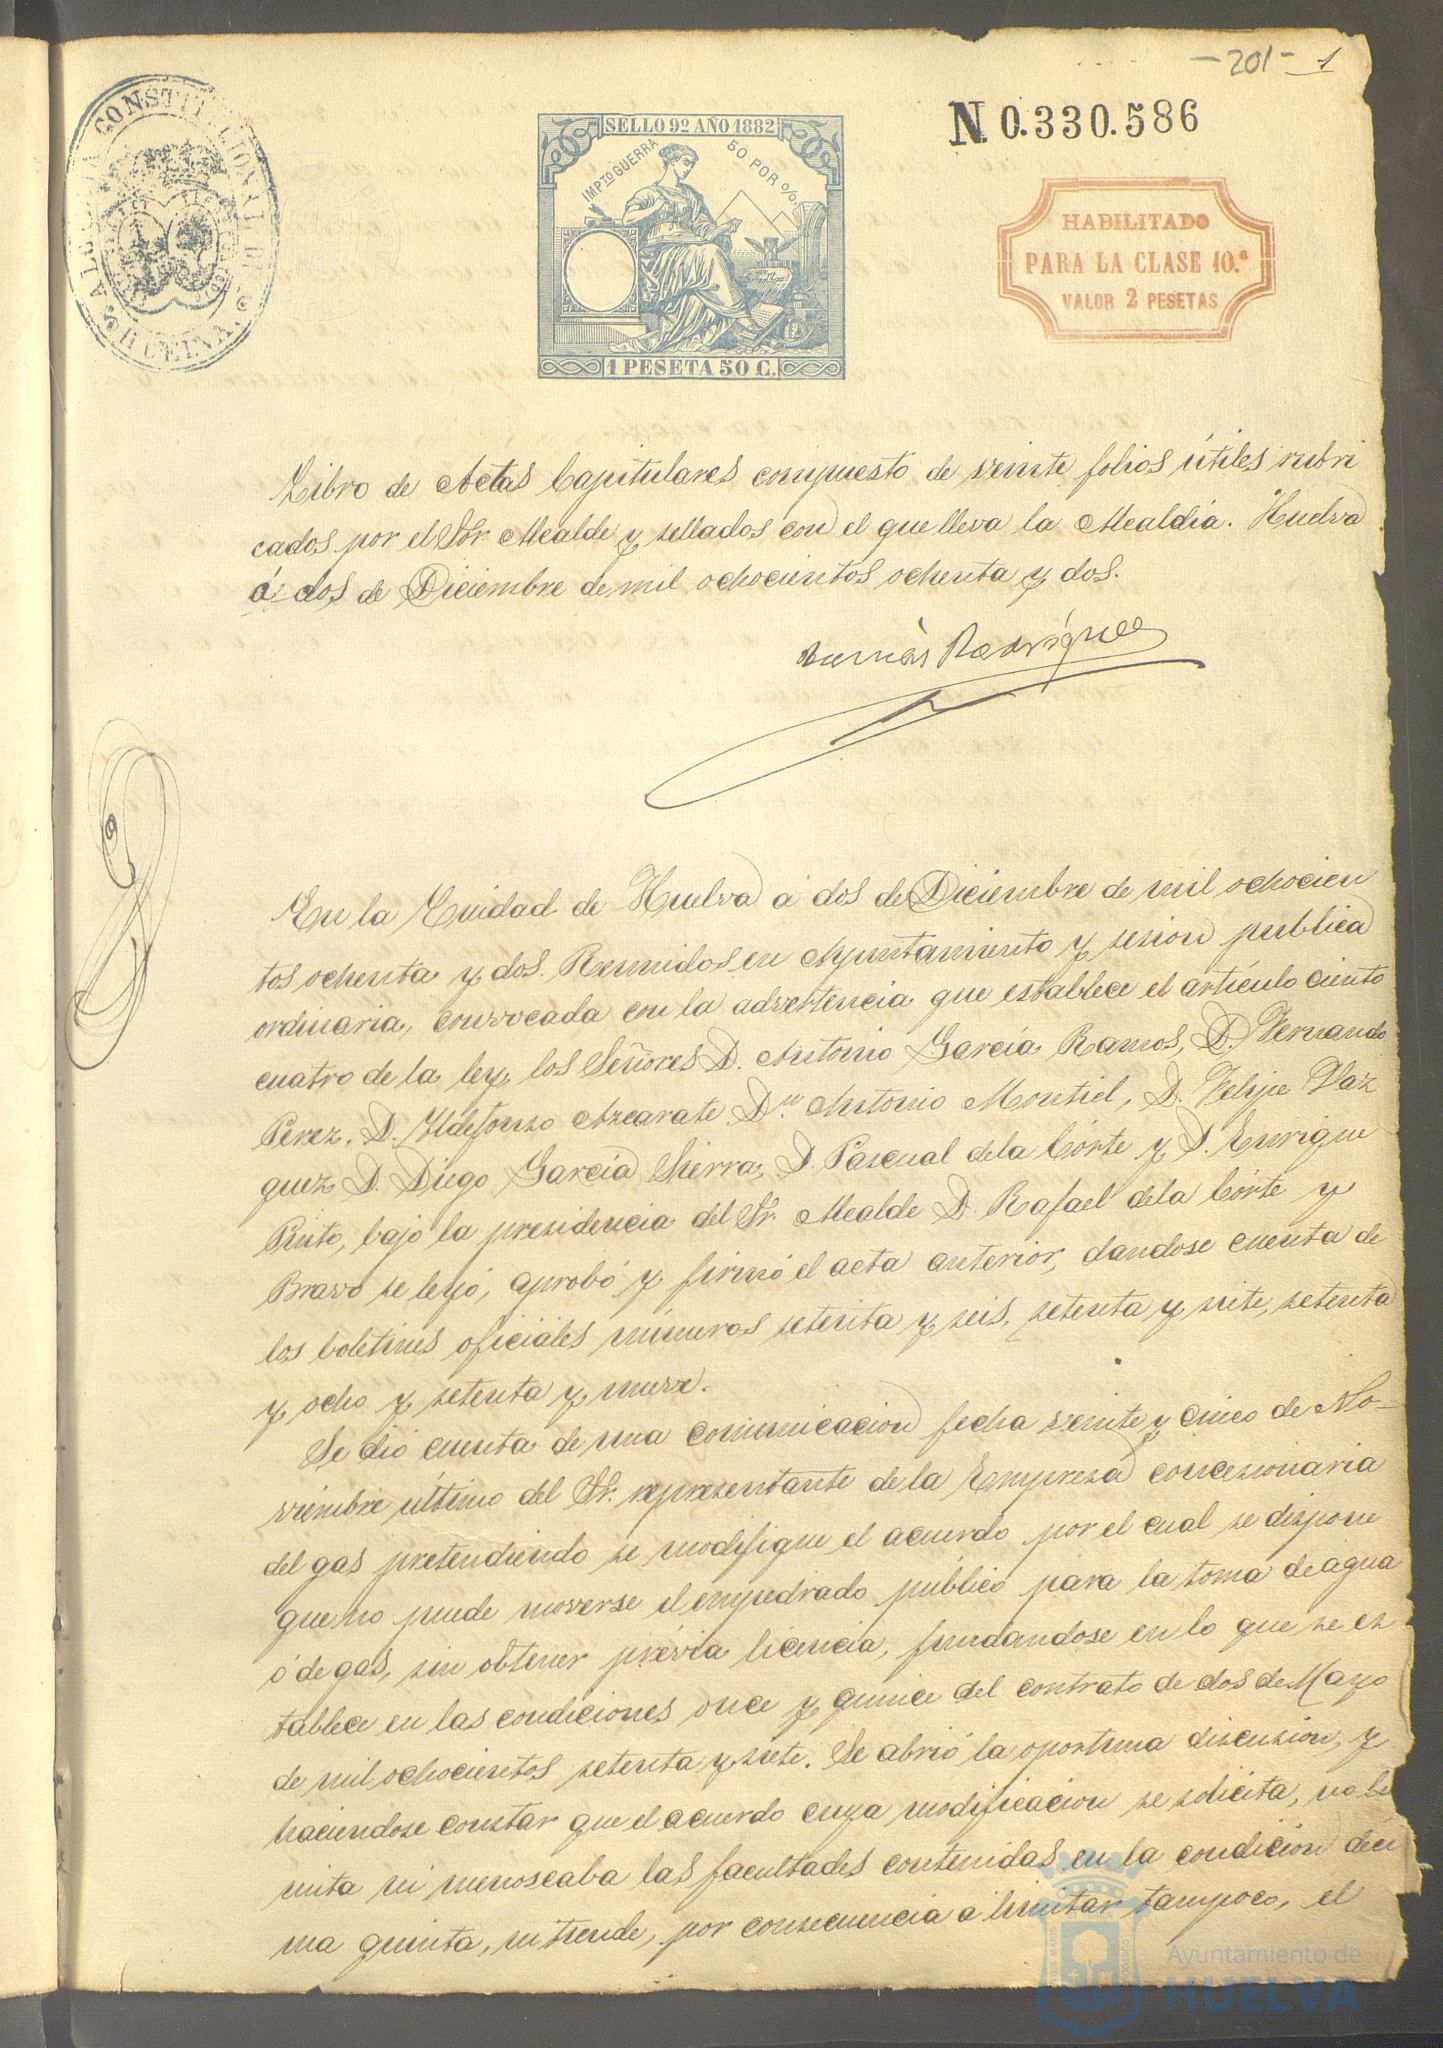 -201- 1
N 0.330.586
ALCALDIA CONSTITUCIONAL DE
HUELVA.
SELLO 9º AÑO 1882
IMPTO GUERRA 50 POR %
1 PESETA 50 C.
HABILITADO
PARA LA CLASE 10.ª
VALOR 2 PESETAS
Libro de Actas Capitulares compuesto de veinte folios útiles rubri
cados por el Sor. Alcalde y sellados con el que lleva la Alcaldia. Huelva
á dos de Diciembre de mil ochocientos ochenta y dos.
Rodriguez
En la Ciudad de Huelva á dos de Diciembre de mil ochocien
tos ochenta y dos. Reunidos en Ayuntamiento y sesion publica
ordinaria, convocada con la advertencia que establece el artículo ciento
cuatro de la ley, los Señores D. Antonio García Ramos, D. Fernando
Perez, D. Yldefonso Azcarate, Dn. Antonio Montiel, D. Felipe Vaz
quez D. Diego García Sierra, D. Pascual dela Córte y D. Enrique
Pinto, bajo la presidencia del Sr. Alcalde D. Rafael dela Córte y
Bravo se leyó, aprobó y firmó el acta anterior, dandose cuenta de
los boletines oficiales números setenta y seis, setenta y siete, setenta
y ocho y setenta y nueve.
Se dió cuenta de una comunicacion fecha veinte y cinco de No-
viembre último del Sr. representante de la Empresa concesionaria
del gas pretendiendo se modifique el acuerdo por el cual se dispone
que no puede moverse el empedrado público para la toma de agua
ó de gas, sin obtener prévia licencia, fundandose en lo que se es
tablece en las condiciones once y quince del contrato de dos de Mayo
de mil ochocientos setenta y siete. Se abrió la oportuna discusion, y
haciendose constar que el acuerdo cuya modificacion se solicita, no li
mita ni menoscaba las facultades contenidas en la condicion déci
ma quinta, ni tiende, por consecuencia á limitar tampoco, el
Ayuntamiento de
HUELVA